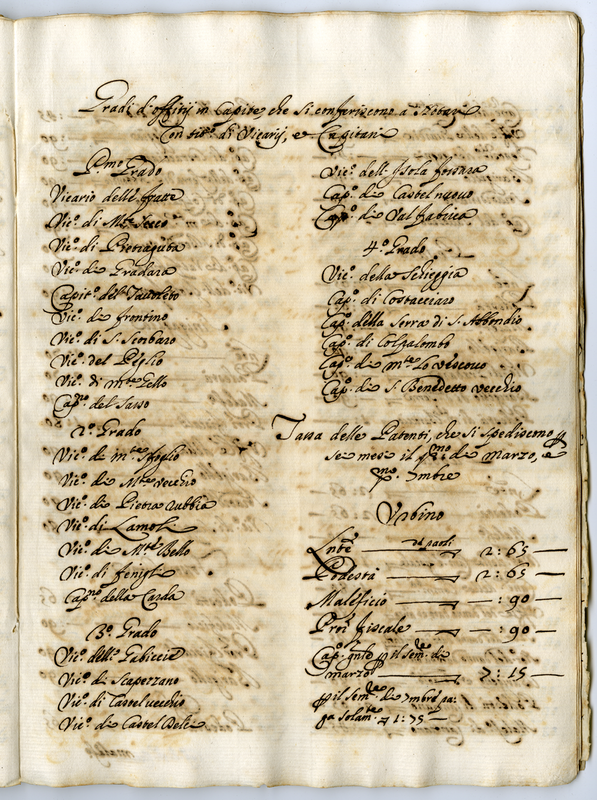 Gradi d'offitij in Capite, che si conferiscono a' Notari
Con tit.º di Vicarij, e Capitani
P.mo Grado
Vicario delle fratte
Vic.º di M.te Secco
Vic.º di Pietragutta
Vic.º di Gradara
Capit.º del Tavoleto
Vic.º di frontino
Vic.º di S. Sorbaro
Vic.º del Peglio
Vic.º di m.te Gello
Cap.no del Sasso
2.º Grado
Vic.º di m.te Afoglio
Vic.º di M.te vecchio
Vic.º di Pietra rubbia
Vic.º di Lamoli
Vic.º di M.te Bello
Vic.º di fenigli
Cap.no della Carda
3.º Grado
Vic.º delle Gabiccie
Vic.º di Scapezzano
Vic.º di Castelvecchio
Vic.º di Castel Delce
Vic.º dell'Isola fossara
Cap.º di Castel nuovo
Cap.º di Valfabrica
4.º Grado
Vic.º della Scheggia
Cap.º di Costacciaro
Cap.º della Serra di S. Abbondio
Cap.º di Colpalombo
Cap.º di m.te Lo vescovo
Cap.º di S. Benedetto vecchio
Tassa delle Patenti, che si spediscono
se mese il p.mo di marzo, e
p.mo 7mbre
Urbino
L.nte 2: 65
Podestà 2: 65
Maleficio : 90
Pror. fiscale : 90
Cap.º gnle p il sem.re di
marzo 7: 15
p il sem.re di 7mbre pa:
ga solam.te 1: 75